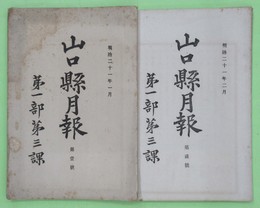 明治二十一年一月
山口縣月報
第壹號
第一部第三課
明治二十一年二月
山口縣月報
第貳號
第一部第三課